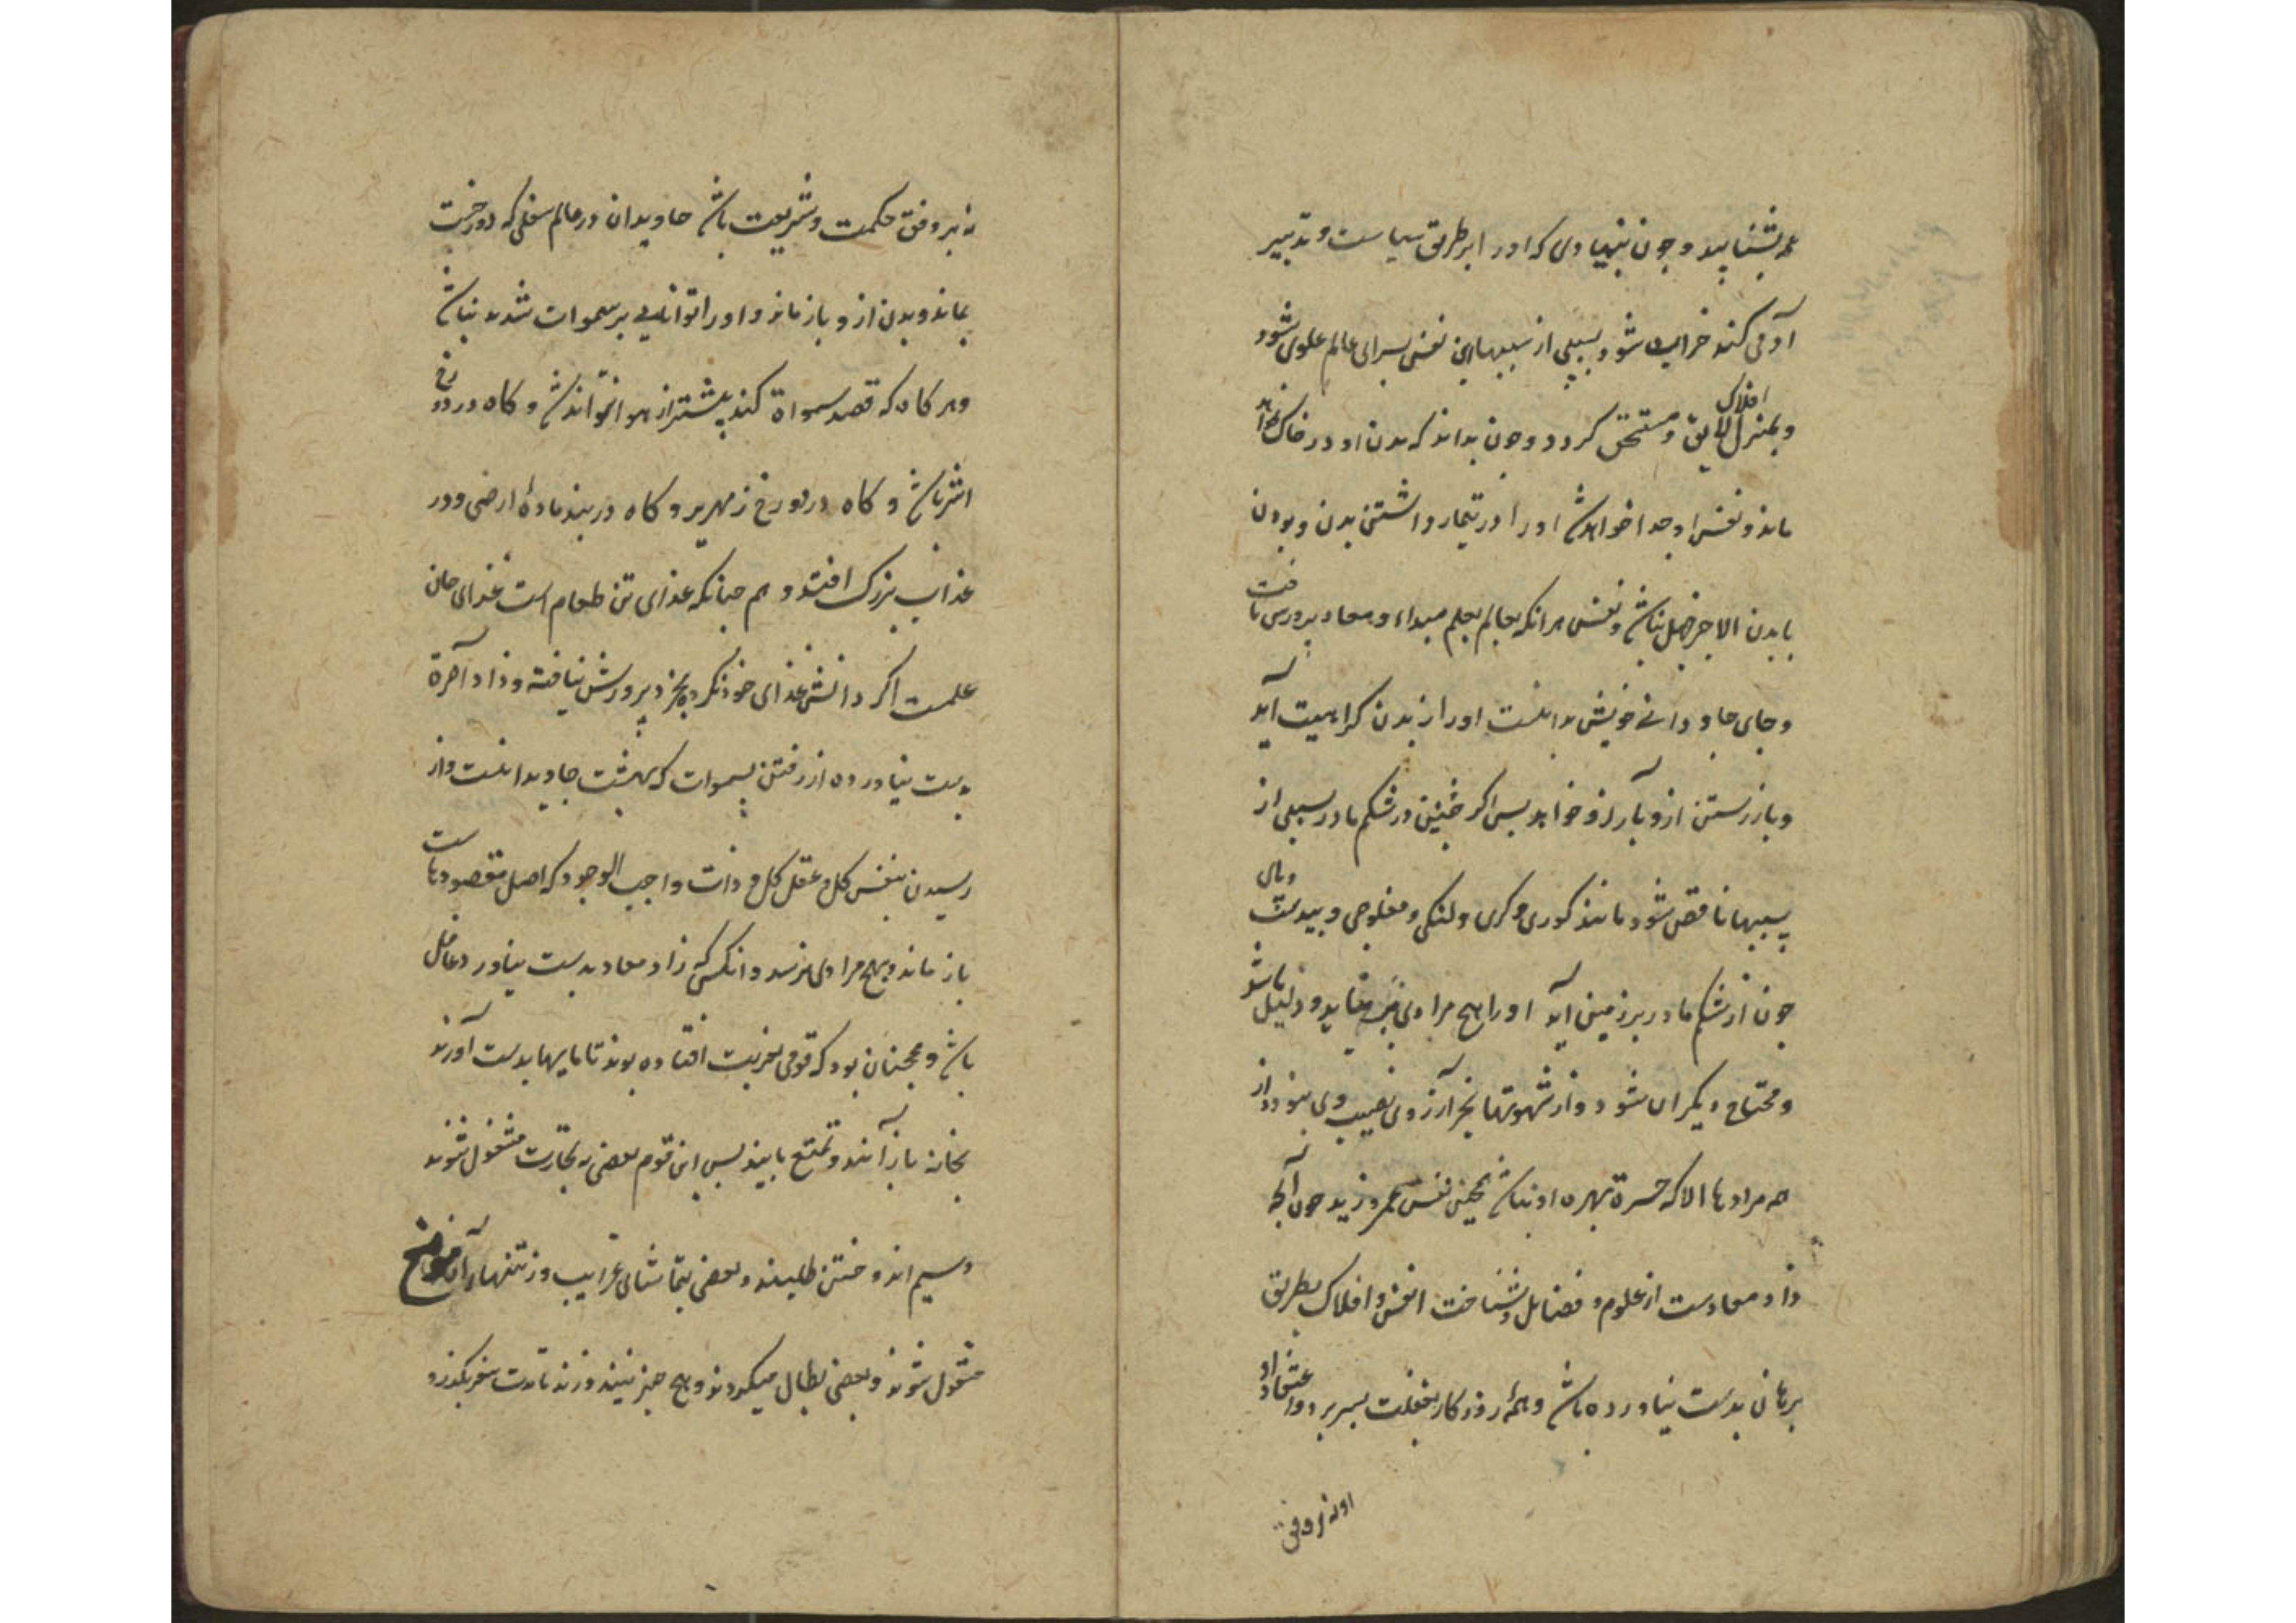 همه بشناسد و چون بنیادی که او را بر طریق سیاست و تدبیر
آدمی کند خراب شود بسببی از سببها این نفس بسرای عالم علوی شود
و بمنزل افلاک لایق و مستحق کردد و چون بداند که بدن او در خاک خواهد
ماند و نفس او جدا خواهد شد او را در تیمار داشتن بدن و بودن
با بدن الا جز جهل نباشد و نفس هر انکه بعالم بعلم مبداء و معاد پرورش یافت
و جای جاودانی خویش بدانست او را از بدن کراهیت آید
و باز رستن ازو بآرزو خواهد پس اکر جنین در شکم مادر بسببی از
سببها ناقص شود مانند کوری و کری و لنکی و مفلوجی و بیدستی و پای
چون از شکم مادر بر زمین آید او را هیچ مرادی نیفزاید و ذلیل باشد
و محتاج دیکران شود و از شهوتها بجز آرزوی نصیب وی نبود و از
همه مرادها الا که حسرة بهره او نباشد همچنین نفس عمرو زید چون آنچه
زاد معادست از علوم و فضایل و شناخت انفس و افلاک بطریق
برهان بدست نیاورده باشد و همه روزکار بغفلت بسر برد و اعتقاد او
او نه بر وفق
نه بر وفق حکمت و شریعت باشد جاویدان در عالم سفلی که دوزخست
بماند و بدن ازو باز ماند و او را توانایی بر سموات شدن نباشد
و هر کاه که قصد سمواة کند پیشتر از هوا نتواند شد و کاه در دوزخ
اثیر باشد و کاه در دوزخ زمهریر و کاه در بند مادهٔ ارضی و در
عذاب بزرک افتد و هم چنانکه غذای تن طعام است غذای جان
علمست اکر دانش غذای خود نکرد بخرد پرورش نیافته و زاد آخرة
بدست نیاورده از رفتن بسموات که بهشت جاویدانست و از
رسیدن بنفس کل و عقل کل و ذات واجب الوجود که اصل مقصودهاست
باز ماند و بهیچ مرادی نرسد و انکس که زاد معاد بدست نیاورد غافل
باشد و همچنان بود که قومی بغربت افتاده بوند تا مایها بدست آورند
بخانه باز آیند و تمتع یابند پس این قوم بعضی به تجارت مشغول شوند
و سیم اندوختن طلبند و بعضی بتماشای غرایب و نزهتهاء آن موضع
مشغول شوند و بعضی بطال میکردند و هیچ چیز نبینند و نزند تا مدت سفر بکذرد